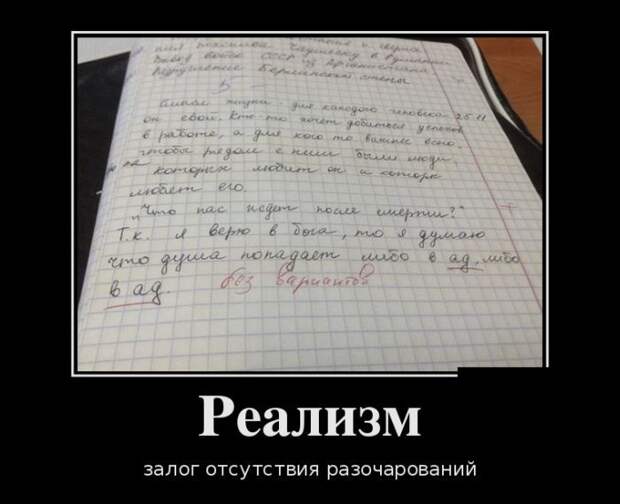 Вывод войск СССР из Афганистана
Разрушение Берлинской стены
Смысл жизни - для каждого человека 25.11
он свой. Кто-то хочет добиться успехов
в работе, а для кого то важнее всего,
чтобы рядом с ним были люди,
которых любит он и которые
любят его.
"Что нас ждет после смерти?"
Т.к. я верю в бога, то я думаю
что душа попадает либо в ад, либо
в ад. без вариантов
Реализм
залог отсутствия разочарований